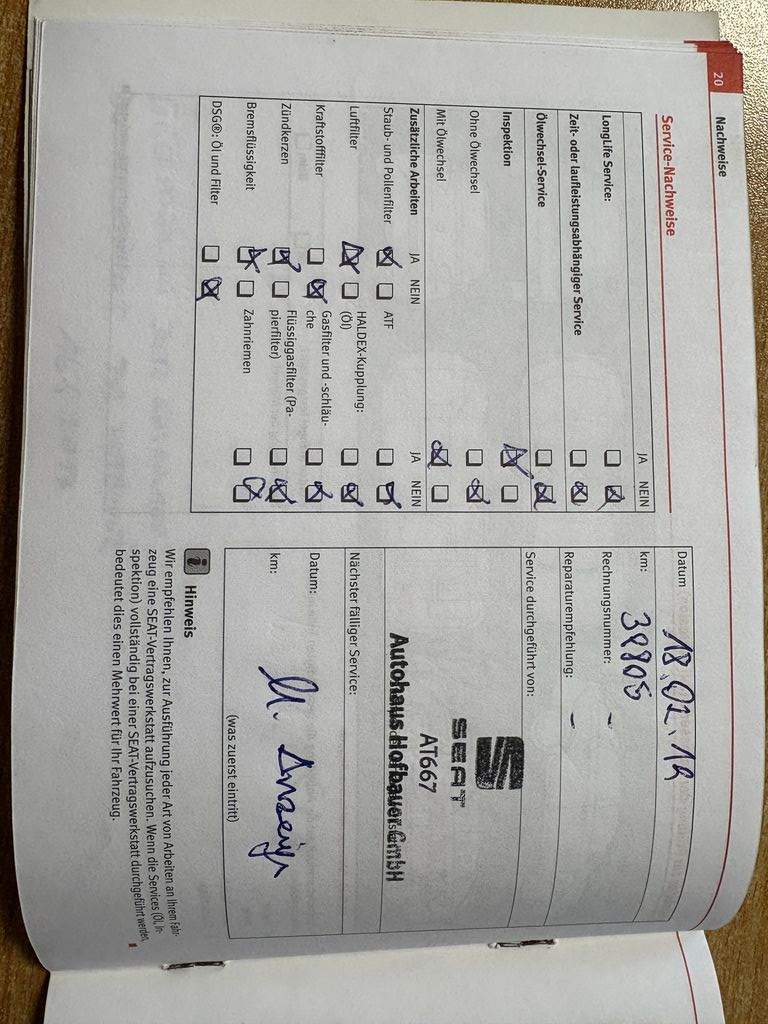 20
Nachweise
Service-Nachweise
JA NEIN
LongLife Service:
Zeit- oder laufleistungsabhängiger Service
Ölwechsel-Service
Inspektion
Ohne Ölwechsel
Mit Ölwechsel
Zusätzliche Arbeiten JA NEIN JA NEIN
Staub- und Pollenfilter ATF
Luftfilter HALDEX-Kupplung:
(Öl)
Kraftstofffilter Gasfilter und -schläu-
che
Zündkerzen Flüssiggasfilter (Pa-
pierfilter)
Bremsflüssigkeit Zahnriemen
DSG®: Öl und Filter
Datum
km: 39805
Rechnungsnummer: -
Reparaturempfehlung: -
Service durchgeführt von:
SEAT
AT667
Autohaus Hofbauer GmbH
Nächster fälliger Service:
Datum:
km:
(was zuerst eintritt)
Hinweis
Wir empfehlen Ihnen, zur Ausführung jeder Art von Arbeiten an Ihrem Fahr-
zeug eine SEAT-Vertragswerkstatt aufzusuchen. Wenn die Services (Öl, In-
spektion) vollständig bei einer SEAT-Vertragswerkstatt durchgeführt werden,
bedeutet dies einen Mehrwert für Ihr Fahrzeug.